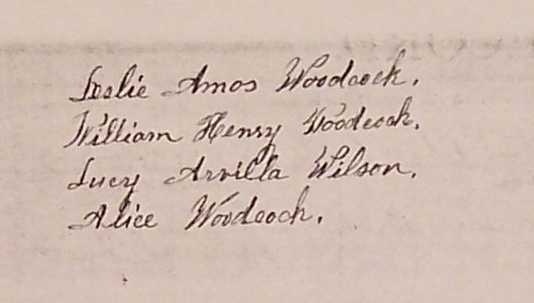 Leslie Amos Woodcock.
William Henry Woodcock.
Lucy Arvilla Wilson.
Alice Woodcock.